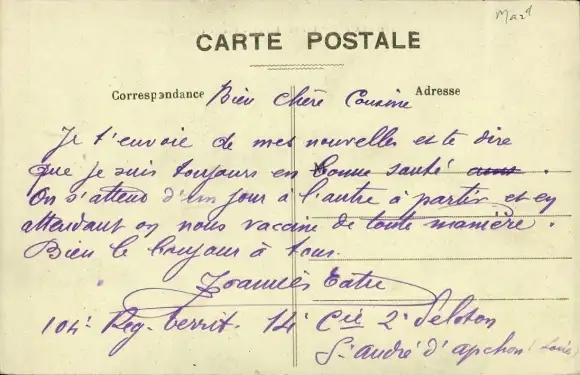 CARTE POSTALE
Correspondance
Adresse
Bien chère Cousine
Je t'envoie de mes nouvelles et te dire
que je suis toujours en bonne santé
On s'attend d'un jour à l'autre à partir et en
attendant on nous vaccine de toute manière.
Bien le bonjour à tous.
Joannès
104e Reg. territ. 14e Cie 2e Péloton
St André d'apchon (Loire)